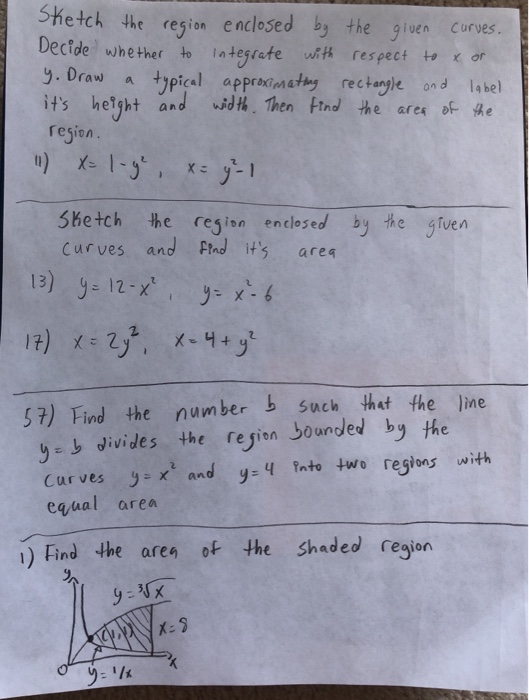 Sketch the region enclosed by the given curves.
Decide whether to integrate with respect to x or
y. Draw a typical approximating rectangle and label
it's height and width. Then find the area of the
region.
11) x = 1 - y², x = y² - 1
Sketch the region enclosed by the given
curves and find it's area
13) y = 12 - x², y = x² - 6
17) x = 2y², x = 4 + y²
57) Find the number b such that the line
y = b divides the region bounded by the
curves y = x² and y = 4 into two regions with
equal area
1) Find the area of the shaded region
y
y = ³√x
(1,1) x = 8
O x
y = 1/x